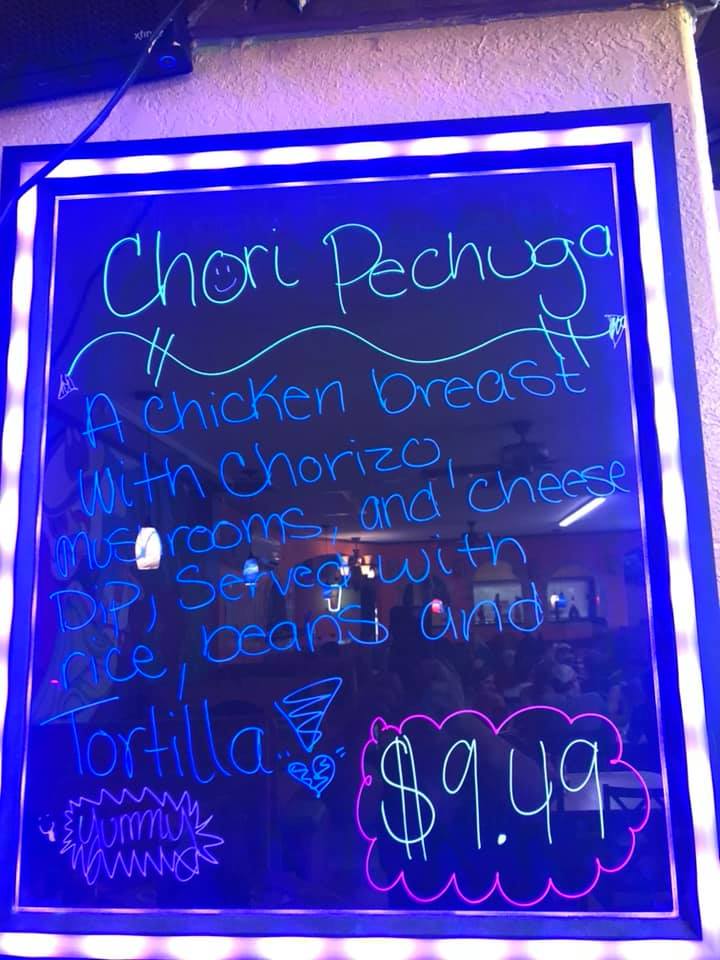 xfin
Chori Pechuga
A chicken breast
with chorizo,
mushrooms, and cheese
Dip, Served with
rice, beans and
Tortilla!
yummy
$9.49